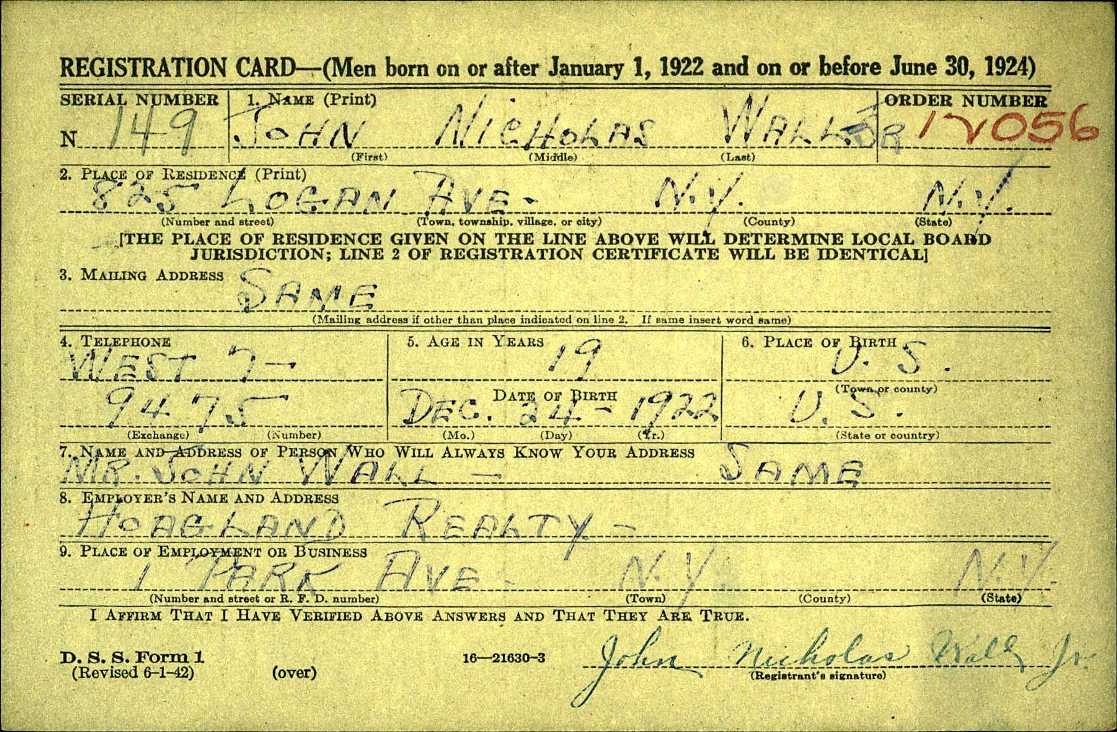 REGISTRATION CARD—(Men born on or after January 1, 1922 and on or before June 30, 1924)
SERIAL NUMBER 1. NAME (Print) ORDER NUMBER
N 149 JOHN NICHOLAS WALL JR 12056
(First) (Middle) (Last)
2. PLACE OF RESIDENCE (Print)
825 LOGAN AVE- N.Y. N.Y.
(Number and street) (Town, township, village, or city) (County) (State)
[THE PLACE OF RESIDENCE GIVEN ON THE LINE ABOVE WILL DETERMINE LOCAL BOARD
JURISDICTION; LINE 2 OF REGISTRATION CERTIFICATE WILL BE IDENTICAL]
3. MAILING ADDRESS
SAME
(Mailing address if other than place indicated on line 2. If same insert word same)
4. TELEPHONE 5. AGE IN YEARS 6. PLACE OF BIRTH
WEST 7- 19 U.S.
DATE OF BIRTH (Town or county)
9475 DEC. 24-1922 U.S.
(Exchange) (Number) (Mo.) (Day) (Yr.) (State or country)
7. NAME AND ADDRESS OF PERSON WHO WILL ALWAYS KNOW YOUR ADDRESS
MR. JOHN WALL - SAME
8. EMPLOYER'S NAME AND ADDRESS
HOAGLAND REALTY-
9. PLACE OF EMPLOYMENT OR BUSINESS
1 PARK AVE- N.Y. N.Y.
(Number and street or R. F. D. number) (Town) (County) (State)
I AFFIRM THAT I HAVE VERIFIED ABOVE ANSWERS AND THAT THEY ARE TRUE.
D. S. S. Form 1 16—21630-3 John Nicholas Wall Jr.
(Revised 6-1-42) (over) (Registrant's signature)